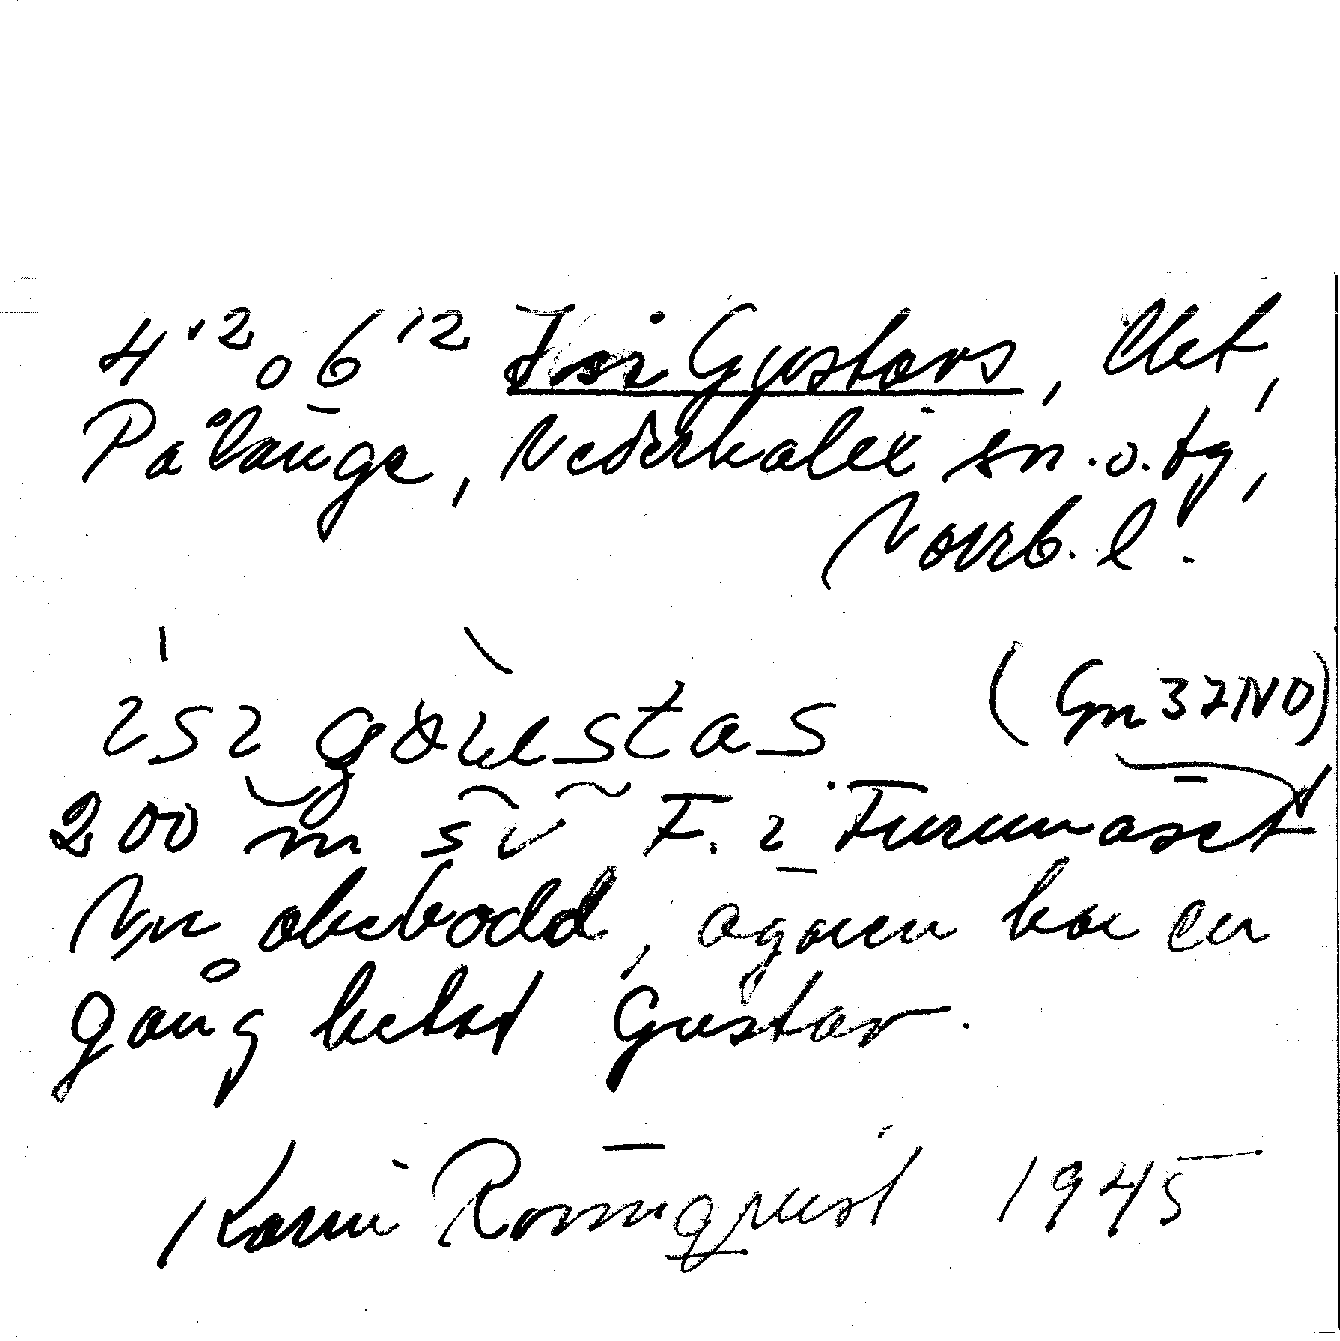 4¹² o 6¹² Issi Gustavs, Uet,
Pålänge, Nederkalix sn. o. tg,
Norrb. l.
(Gn 37NO)
200 m sv F. i Furunäset
Nu obebodd, ägaren har en
gång hetat Gustav.
Karin Rönnqvist 1945